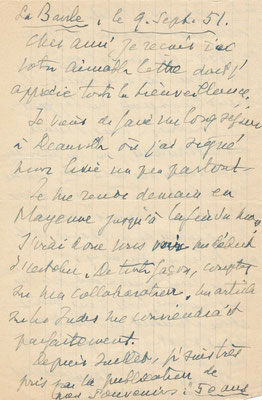 La Baule, le 9. Sept. 51.
Cher ami, je reçois ici
votre aimable lettre dont j'
apprécie toute la bienveillance.
Je viens de faire un long séjour
à Deauville où j'ai signé
mon livre un peu partout.
Je me rends demain en
Mayenne jusqu'à la fin du mois
J'irai donc vous voir au début
d'octobre. De toute façon, comptez
sur ma collaboration. Un article
sur les me conviendrait
parfaitement.
Depuis Juillet, j'ai été très
pris par la publication de
mes Souvenirs: 50 ans